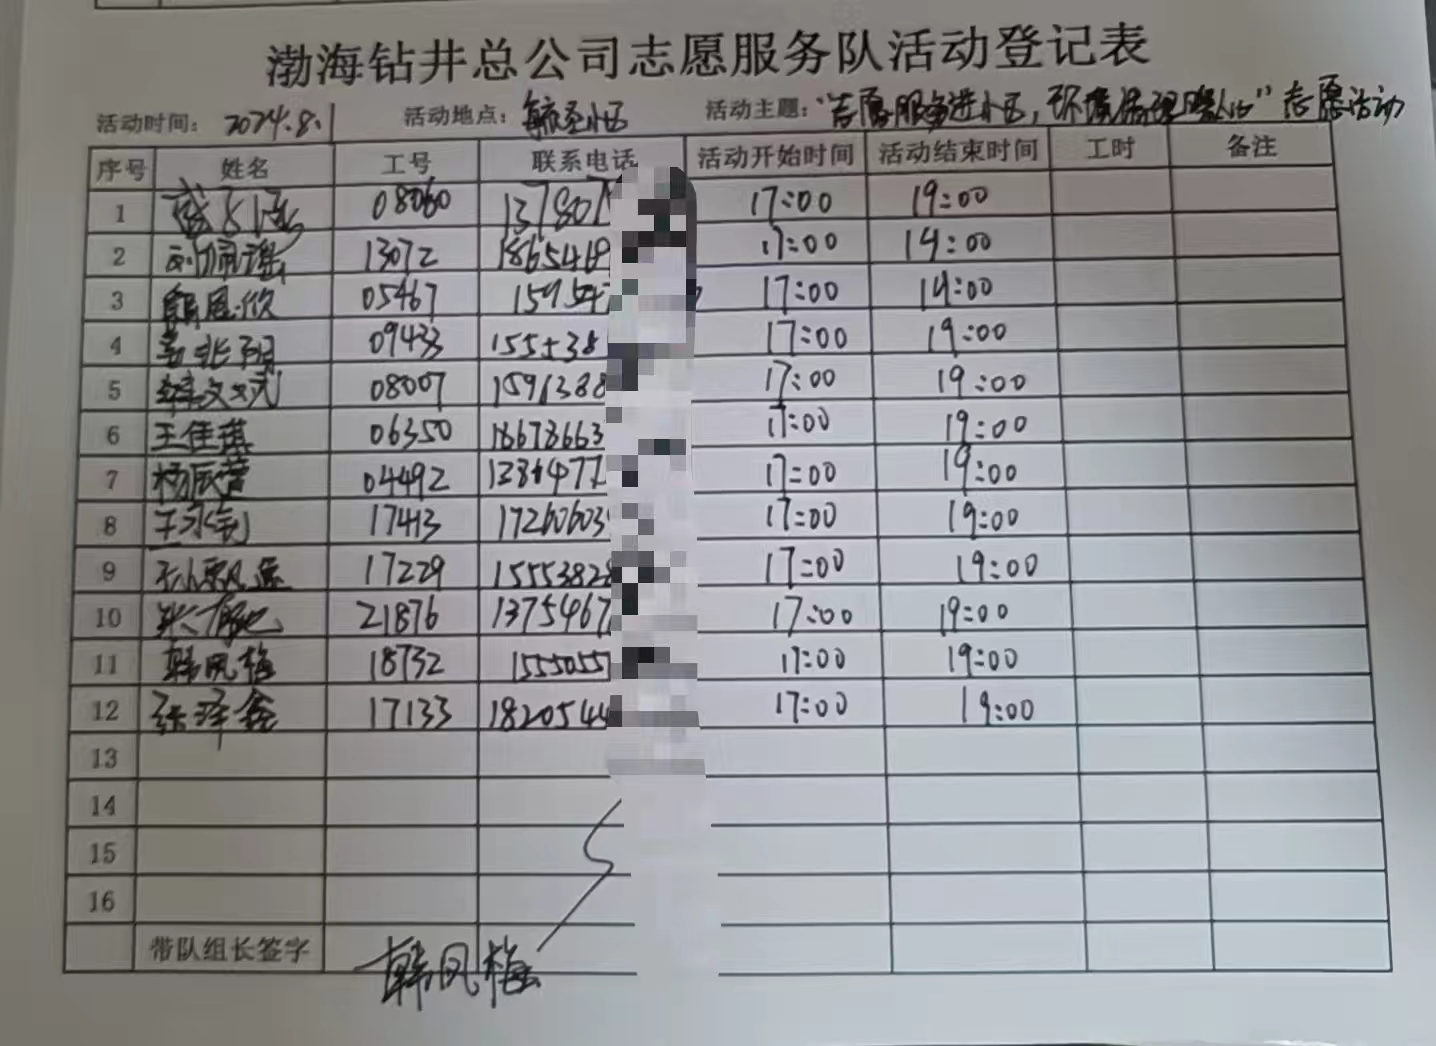 渤海钻井总公司志愿服务队活动登记表
活动时间: 2024.8.1 活动地点: 小区 活动主题: "志愿服务进小区,环境" 志愿活动
序号 姓名 工号 联系电话 活动开始时间 活动结束时间 工时 备注
1 08060 137807 17:00 19:00
2 刘佩瑶 13072 1865469 17:00 19:00
3 05467 15954 17:00 19:00
4 09433 155538 17:00 19:00
5 08007 1591388 17:00 19:00
6 王佳琪 06350 18678663 17:00 19:00
7 杨辰萱 04492 1386477 17:00 19:00
8 王永钊 17413 17260603 17:00 19:00
9 17229 15553828 17:00 19:00
10 21876 1375467 17:00 19:00
11 韩凤梅 18732 1555055 17:00 19:00
12 张泽鑫 17133 1820544 17:00 19:00
13
14
15
16
带队组长签字 韩凤梅